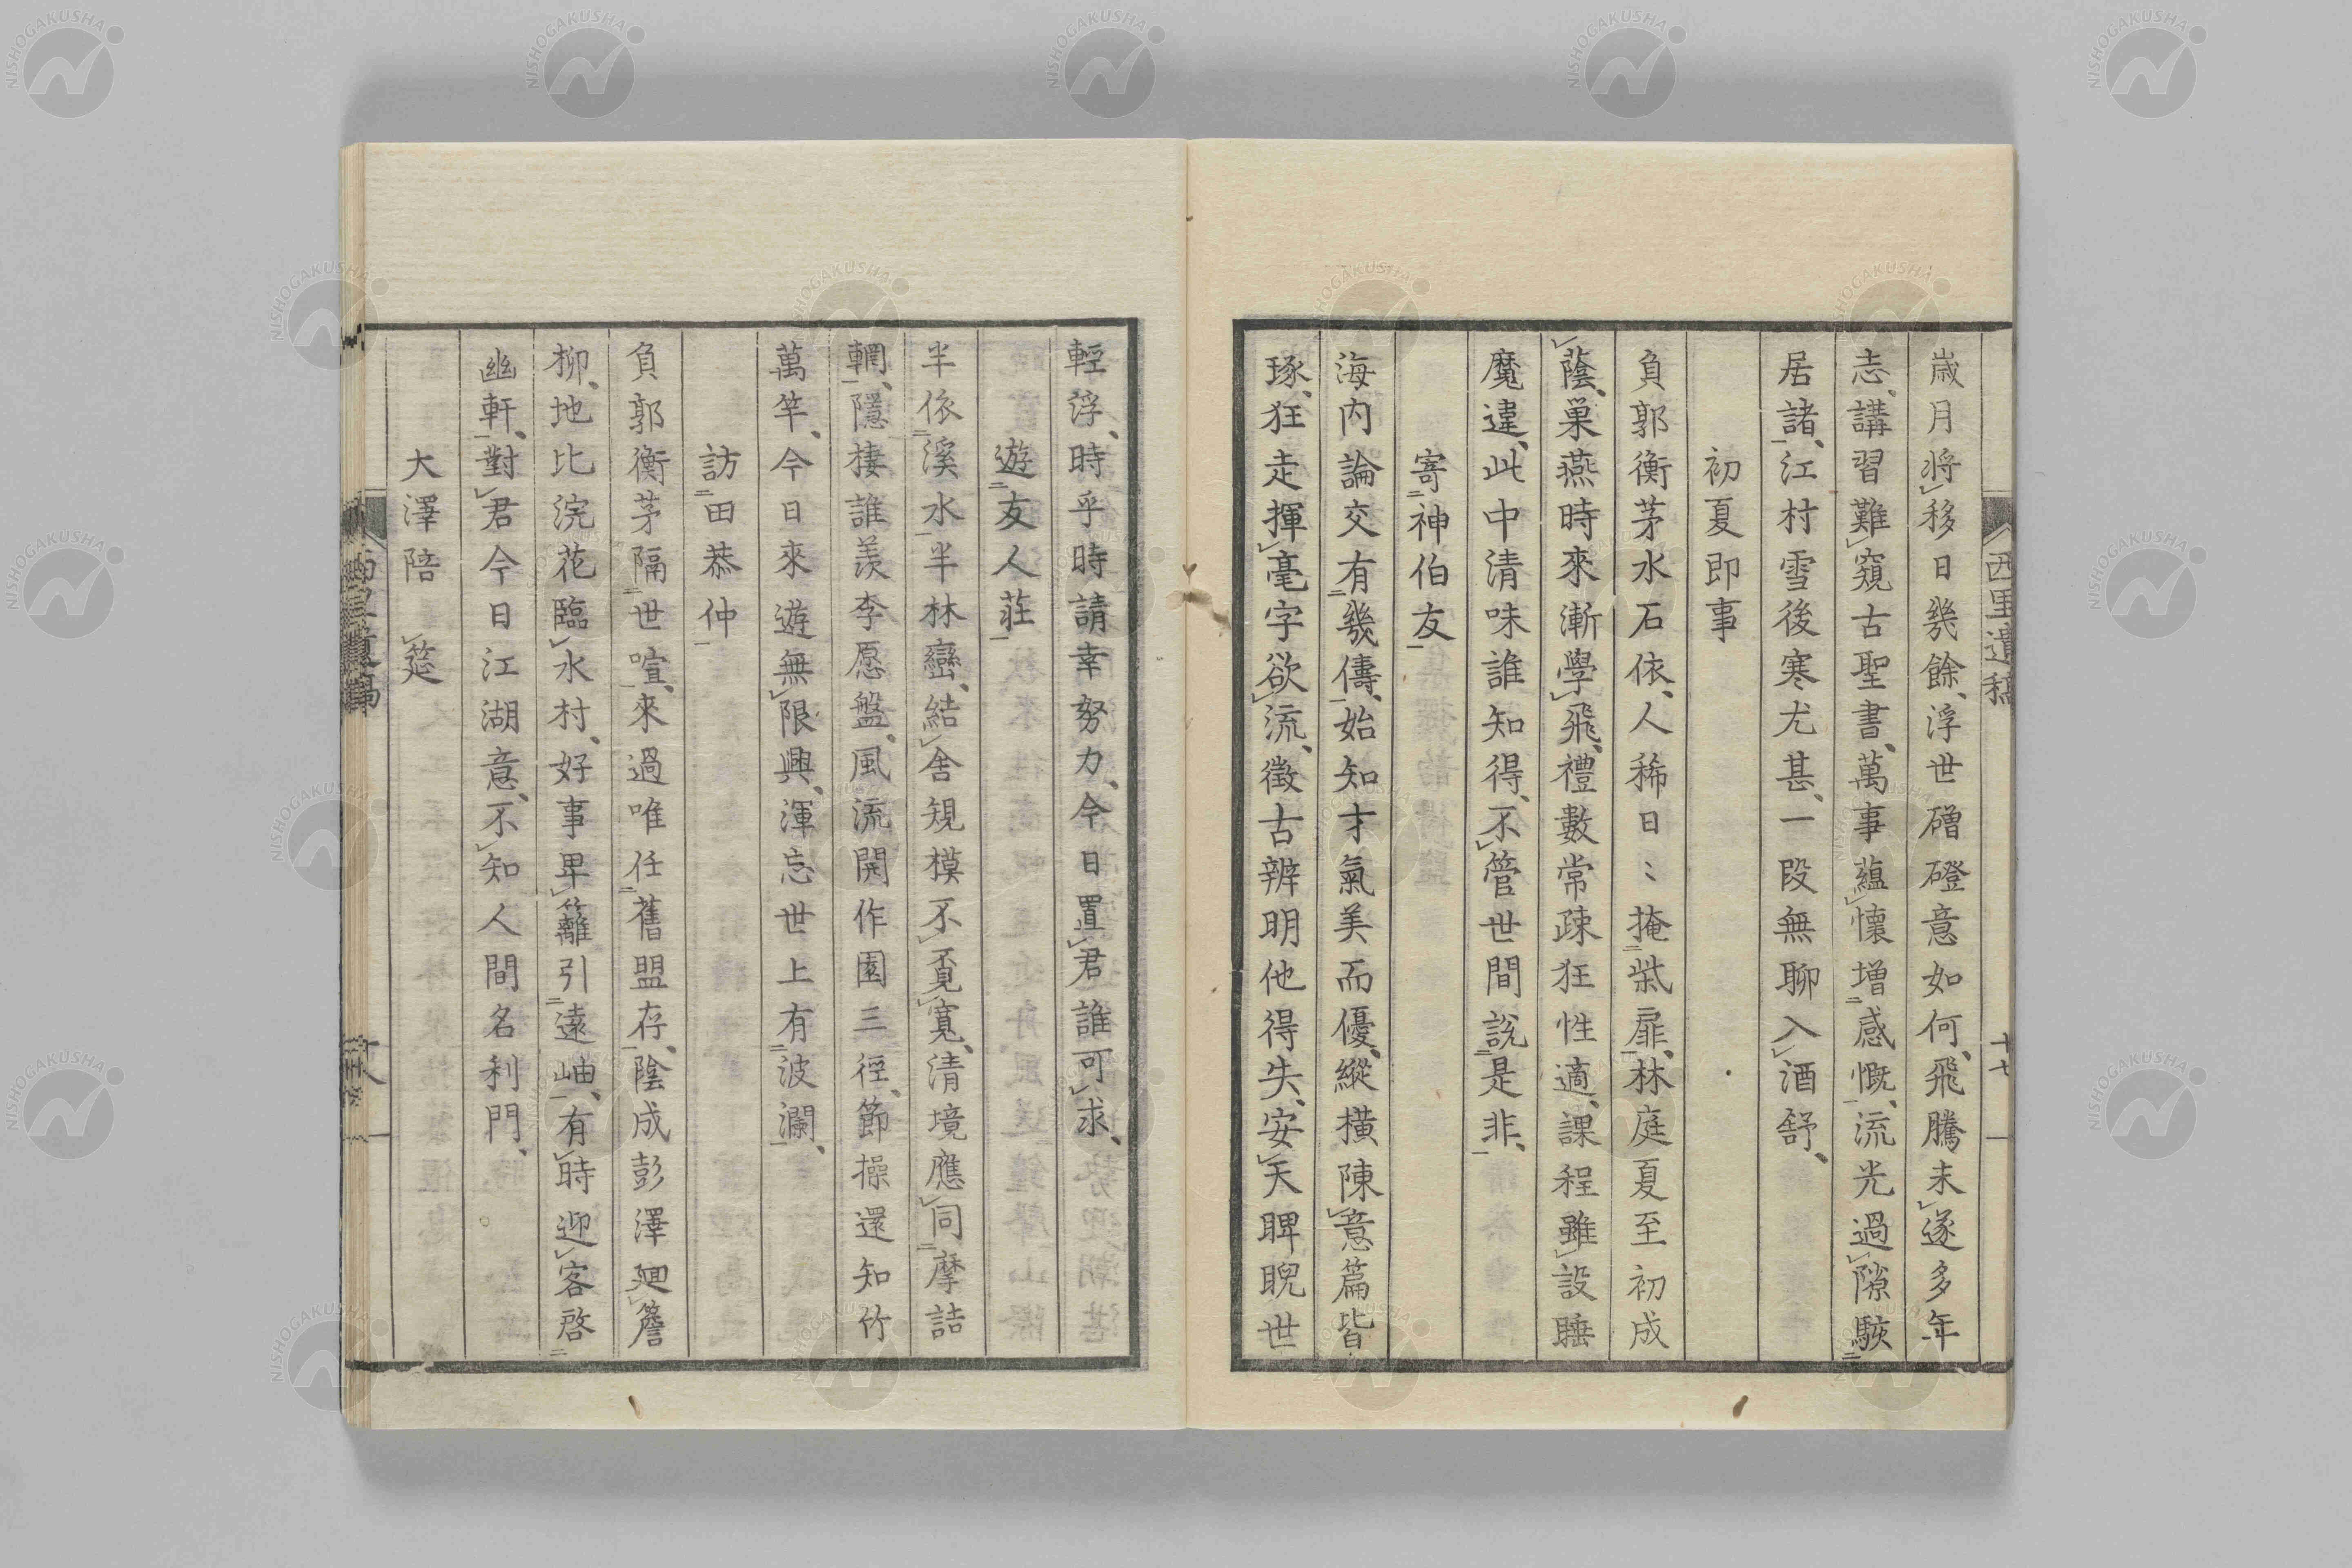 西里遺稿
十七
歳月將移日幾餘、浮世磳磴意如何、飛騰未遂多年
志、講習難窺古聖書、萬事蘊懷增感慨、流光過隙駭
居諸、江村雪後寒尤甚、一段無聊入酒舒、
初夏即事
負郭衡茅水石依、人稀日〻掩柴扉、林庭夏至初成
蔭、巢燕時來漸學飛、禮數常疎狂性適、課程雖設睡
魔違、此中清味誰知得、不管世間說是非、
寄神伯友
海内論交有幾儔、始知才氣美而優、縱橫陳意篇皆
琢、狂走揮毫字欲流、徵古辨明他得失、安天睥睨世
輕浮、時乎時請幸努力、今日置君誰可求、
遊友人莊
半依溪水半林巒、結舍規模不覓寬、清境應同摩詰
輞、隱棲誰羨李愿盤、風流開作園三徑、節操還知竹
萬竿、今日來遊無限興、渾忘世上有波瀾、
訪田恭仲
負郭衡茅隔世喧、來過唯任舊盟存、陰成彭澤廻簷
柳、地比浣花臨水村、好事卑籬引遠岫、有時迎客啓
幽軒、對君今日江湖意、不知人間名利門、
大澤陪筵
NISHOGAKUSHA